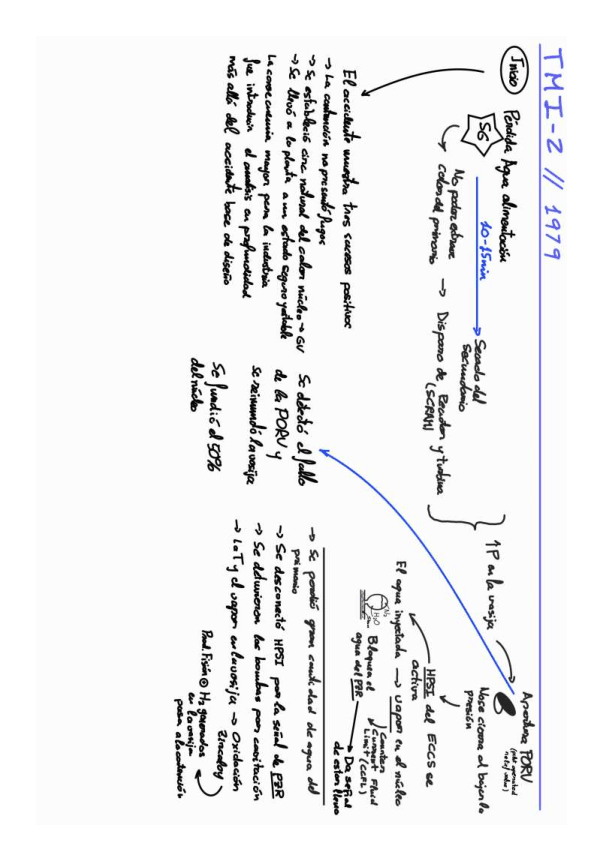 TMI-2 // 1979
Inicio
Pérdida Agua alimentación
SG
10-15min
Secado del
secundario
No poder extraer
calor del primario → Disparo de Reactor y turbina
(SCRAM)
↑P en la vasija
Apertura PORV
No se cierra al bajar la
presión
HPSI del ECCS se
activa
El agua inyectada → vapor en el núcleo
H2O
Bloquea el
agua del PZR
Counter
Current Fluid
Limit (CCFL)
→ Da señal
de estar lleno
→ Se perdió gran cantidad de agua del
primario
→ Se desconectó HPSI por la señal de PZR
→ Se detuvieron las bombas por cavitación
→ La T y el vapor en la vasija → Oxidación
Zircaloy
Prod. Fisión H2 generados
en la vasija
pasan a la contención
Se detectó el fallo
de la PORV y
se reinundó la vasija
Se fundió el 50%
del núcleo
El accidente muestra tres sucesos positivos
→ La contención no presentó fugas
→ Se estableció circ natural del calor núcleo → GV
→ Se llevó a la planta a un estado seguro y estable
La consecuencia mayor para la industria
fue introducir el análisis en profundidad
más allá del accidente base de diseño